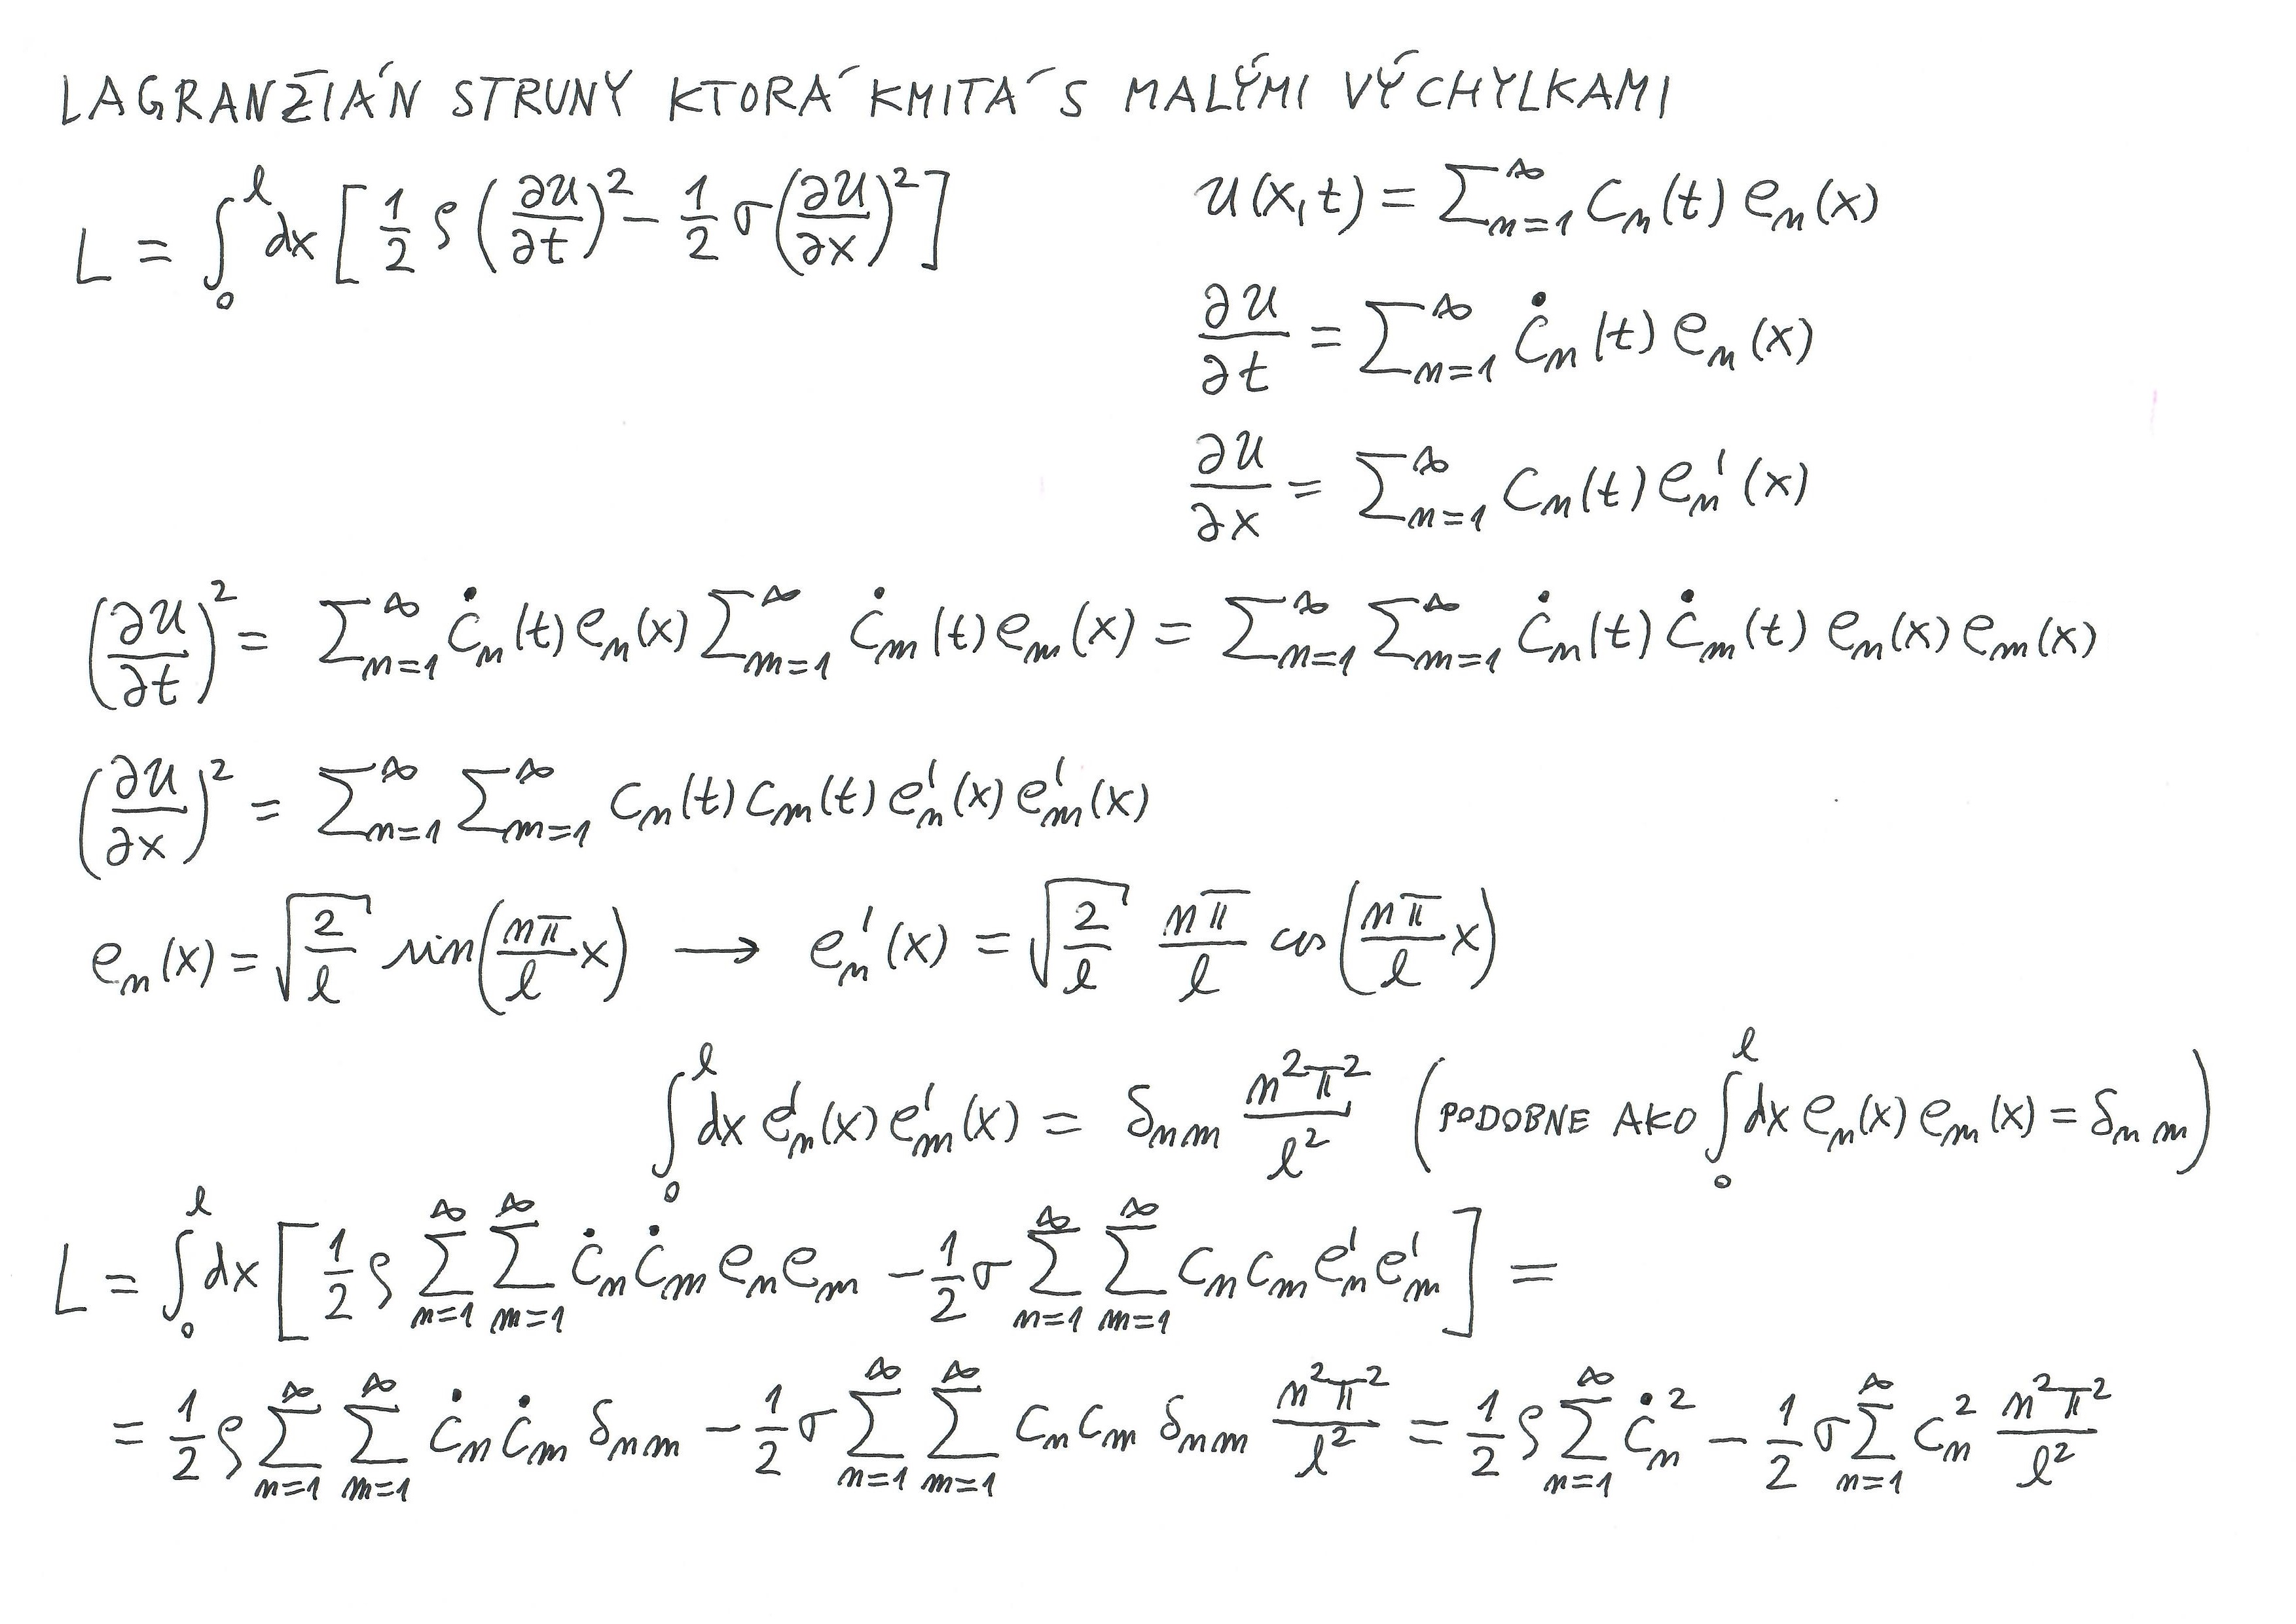 LAGRANŽIÁN STRUNY KTORÁ KMITÁ S MALÝMI VÝCHYLKAMI
L = ∫₀^l dx [ 1/2 ρ (∂u/∂t)² − 1/2 σ (∂u/∂x)² ]
u(x,t) = ∑_{n=1}^∞ c_n(t) e_n(x)
∂u/∂t = ∑_{n=1}^∞ ċ_n(t) e_n(x)
∂u/∂x = ∑_{n=1}^∞ c_n(t) e_n'(x)
(∂u/∂t)² = ∑_{n=1}^∞ ċ_n(t) e_n(x) ∑_{m=1}^∞ ċ_m(t) e_m(x) = ∑_{n=1}^∞ ∑_{m=1}^∞ ċ_n(t) ċ_m(t) e_n(x) e_m(x)
(∂u/∂x)² = ∑_{n=1}^∞ ∑_{m=1}^∞ c_n(t) c_m(t) e_n'(x) e_m'(x)
e_n(x) = √(2/l) sin(nπ/l x) → e_n'(x) = √(2/l) nπ/l cos(nπ/l x)
∫₀^l dx e_n'(x) e_m'(x) = δ_nm n²π²/l² (PODOBNE AKO ∫₀^l dx e_n(x) e_m(x) = δ_nm)
L = ∫₀^l dx [ 1/2 ρ ∑_{n=1}^∞ ∑_{m=1}^∞ ċ_n ċ_m e_n e_m − 1/2 σ ∑_{n=1}^∞ ∑_{m=1}^∞ c_n c_m e_n' e_m' ] =
= 1/2 ρ ∑_{n=1}^∞ ∑_{m=1}^∞ ċ_n ċ_m δ_nm − 1/2 σ ∑_{n=1}^∞ ∑_{m=1}^∞ c_n c_m δ_nm n²π²/l² = 1/2 ρ ∑_{n=1}^∞ ċ_n² − 1/2 σ ∑_{n=1}^∞ c_n² n²π²/l²